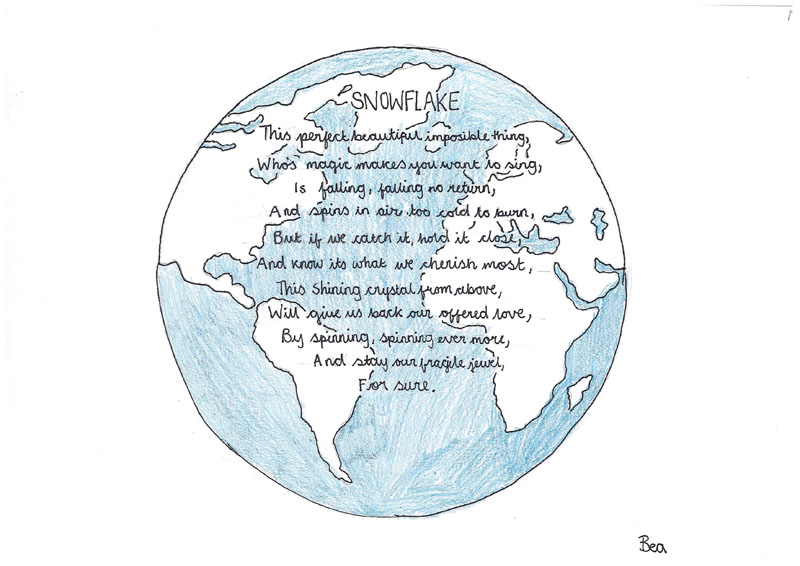 SNOWFLAKE
This perfect beautiful imposible thing,
Who's magic makes you want to sing,
Is falling, falling no return,
And spins in air too cold to burn,
But if we catch it, hold it close,
And know its what we cherish most,
This Shining crystal from above,
Will give us back our offered love,
By spinning, spinning ever more,
And stay our fragile jewel,
For sure.
Bea